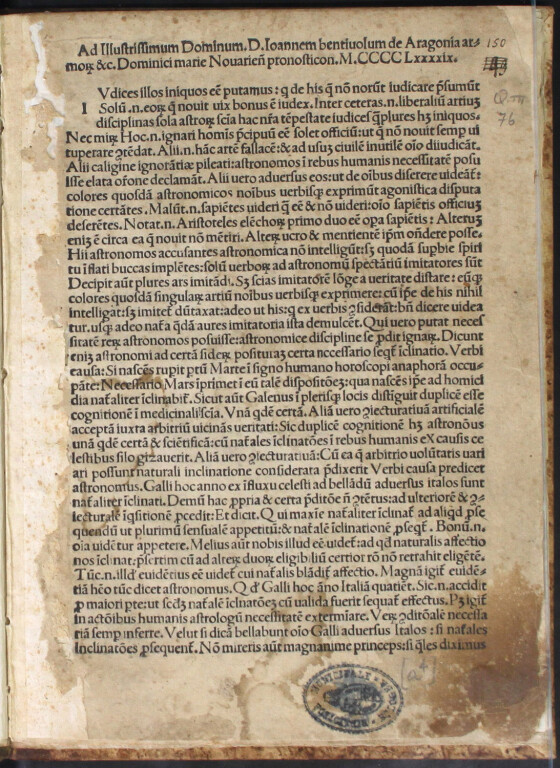 Ad Illustrissimum Dominum. D. Ioannem bentiuolum de Aragonia ar⸗
moꝝ &c. Dominici marie Nouarieñ pronosticon. M.CCCC Lxxxix.
150
43
76
I Vdices illos iniquos eē putamus: q̱ de his q̄ nō norūt iudicare p̄sumūt
Solū .n. eoꝝ q̄ nouit uix bonus ē iudex. Inter ceteras .n. liberaliū artiuꝫ
disciplinas sola astroꝝ scīa hac nr̄a tēpestate iudices q̄plures hꝫ iniquos.
Nec miꝝ Hoc .n. ignari homīs p̄cipuū eē solet officiū: ut q̄ nō nouit semp ui
tuperare ꝯtēdat. Alii .n. hāc artē fallacē: & ad usuꝫ ciuilē inutilē oīo diiudicāt.
Alii caligine ignorātiæ pileati: astronomos ī rebus humanis necessitatē posu
isse elata ofone declamāt. Alii uero aduersus eos: ut de oībus diserere uideāt̄:
colores quosdā astronomicos noībus uerbisqꝫ exprimūt agonistica disputa
tione certātes. Malūt .n. sapiētes uideri q̱ eē & nō uideri: oīo sapiētis officiuꝫ
deserētes. Notat .n. Aristoteles elēchoꝝ primo duo eē opa sapiētis: Alteruꝫ
eniꝫ ē circa ea q̄ nouit nō mētiri. Alteꝝ uero & mentientē ip̄m oñdere posse.
Hii astronomos accusantes astronomica nō intelligūt: sꝫ quodā supbie spiri
tu īflati buccas implētes: solū uerboꝝ ad astronomū spectātiū imitatores sūt
Decipit aūt plures ars imitādi. Sꝫ scias imitatorē lōge a ueritate distare: eūqꝫ
colores quosdā singulaꝝ artiū noībus uerbisqꝫ exprimere: cū ip̄e de his nihil
intelligat: sꝫ imitet̄ dūtaxat: adeo ut his: q̱ ex uerbis ꝯsiderāt: bn̄ dicere uidea
tur. usqꝫ adeo nat̄a q̄dā aures imitatoria ista demulcēt. Qui uero putat neces
sitatē reꝝ astronomos posuisse: astronomice discipline se p̄dit ignaꝝ. Dicunt
eniꝫ astronomi ad certā sideꝝ posituraꝫ certa necessario seq̄t̄ īclinatio. Verbi
causa: Si nascēs rupit ptū Marte ī signo humano horoscopi anaphorā occu⸗
pāte: Necessario Mars īprimet ī eū talē dispositōeꝫ: qua nascēs ip̄e ad homici
dia nat̄aliter īclinabit̄. Sicut aūt Galenus ī plerisqꝫ locis distiguit duplicē esse
cognitionē ī medicinali scīa. Vnā q̄dē certā. Aliā uero ꝯiecturatiuā artificialē
acceptā iuxta arbitriū uicinās ueritati: Sic duplicē cognitionē hꝫ astronōus
unā q̄dē certā & sciētificā: cū nat̄ales īclinatōes ī rebus humanis ex causis ce
lestibus silogizauerit. Aliā uero ꝯiecturatiuā: Cū ea q̄ arbitrio uolūtatis uari
ari possunt naturali inclinatione considerata p̄dixerit Verbi causa predicet
astronomus. Galli hoc anno ex īfluxu celesti ad bellādū aduersus italos sunt
nat̄aliter īclinati. Demū hac ꝓpria & certa p̄ditōe n̄ ꝯtētus: ad ulteriorē & ꝯ⸗
iecturalē īq̱sitionē ꝓcedit: Et dicit. Q ui maxīe nat̄aliter īclinat̄ ad aliq̱d pse
quendū ut plurimū sensualē appetitū: & nat̄alē īclinationē ꝓseq̄t̄. Bonū .n.
oīa uidēt̄ur appetere. Melius aūt nobis illud eē uidet̄: ad q̱d naturalis affectio
nos īclīnat: p̄sertim cū ad alteꝝ duoꝝ eligibiliū certior rō nō retrahit eligētē.
Tūc .n. illd̄ euidētius eē uidet̄ cui nat̄alis blādīt̄ affectio. Magnā igit̄ euidē⸗
tiā hēo tūc dicet astronomus. Q d̄ Galli hoc āno Italiā quatiēt. Sic .n. accidit
ꝓ maiori pte: ut secl̄ꝫ nat̄alē īclinatōeꝫ cū ualida fuerit sequat̄ effectus. Pꝫ igit̄
in actōibus humanis astrologū necessitatē extermīare. Veꝝ ꝯditōalē necessa
riā semp inferre. Velut si dicā bellabunt oīo Galli aduersus Italos: si nat̄ales
Inclinatōes ꝓsequent̄. Nō mireris aūt magnanime princeps: si q̄les diximus
[a4]